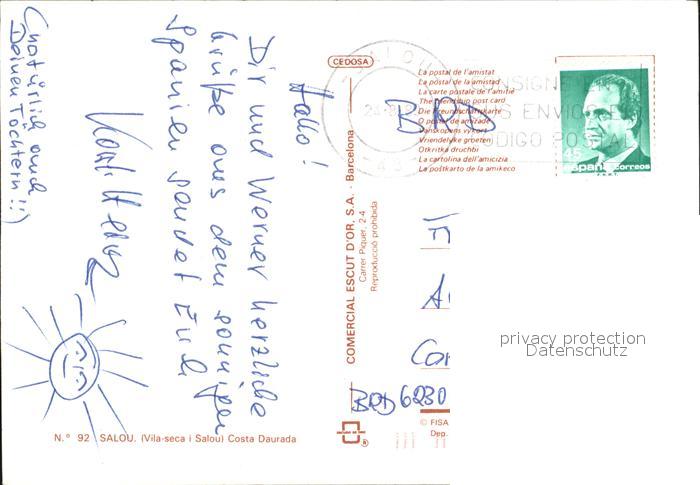 Hallo!
Dir und Werner herzliche
Grüße aus dem sonnigen
Spanien sendet Euch
(natürlich auch
Deinen Töchtern!!)
CEDOSA
La postal de l'amistat
La postal de la amistad
La carte postale de l'amitié
The friendship post card
Die Freundschaftskarte
O postal de amizade
Vänskapens vykort
Vriendelyke groeten
Otkritka druchbi
La cartolina dell'amicizia
La poŝtkarto de la amikeco
BRD
45
España correos
COMERCIAL ESCUT D'OR, S.A. - Barcelona
Carrer Piquer, 2-4
Reproducció prohibida
BRD 6230
© FISA
Dep.
N.º 92 SALOU. (Vila-seca i Salou) Costa Daurada
privacy protection
Datenschutz